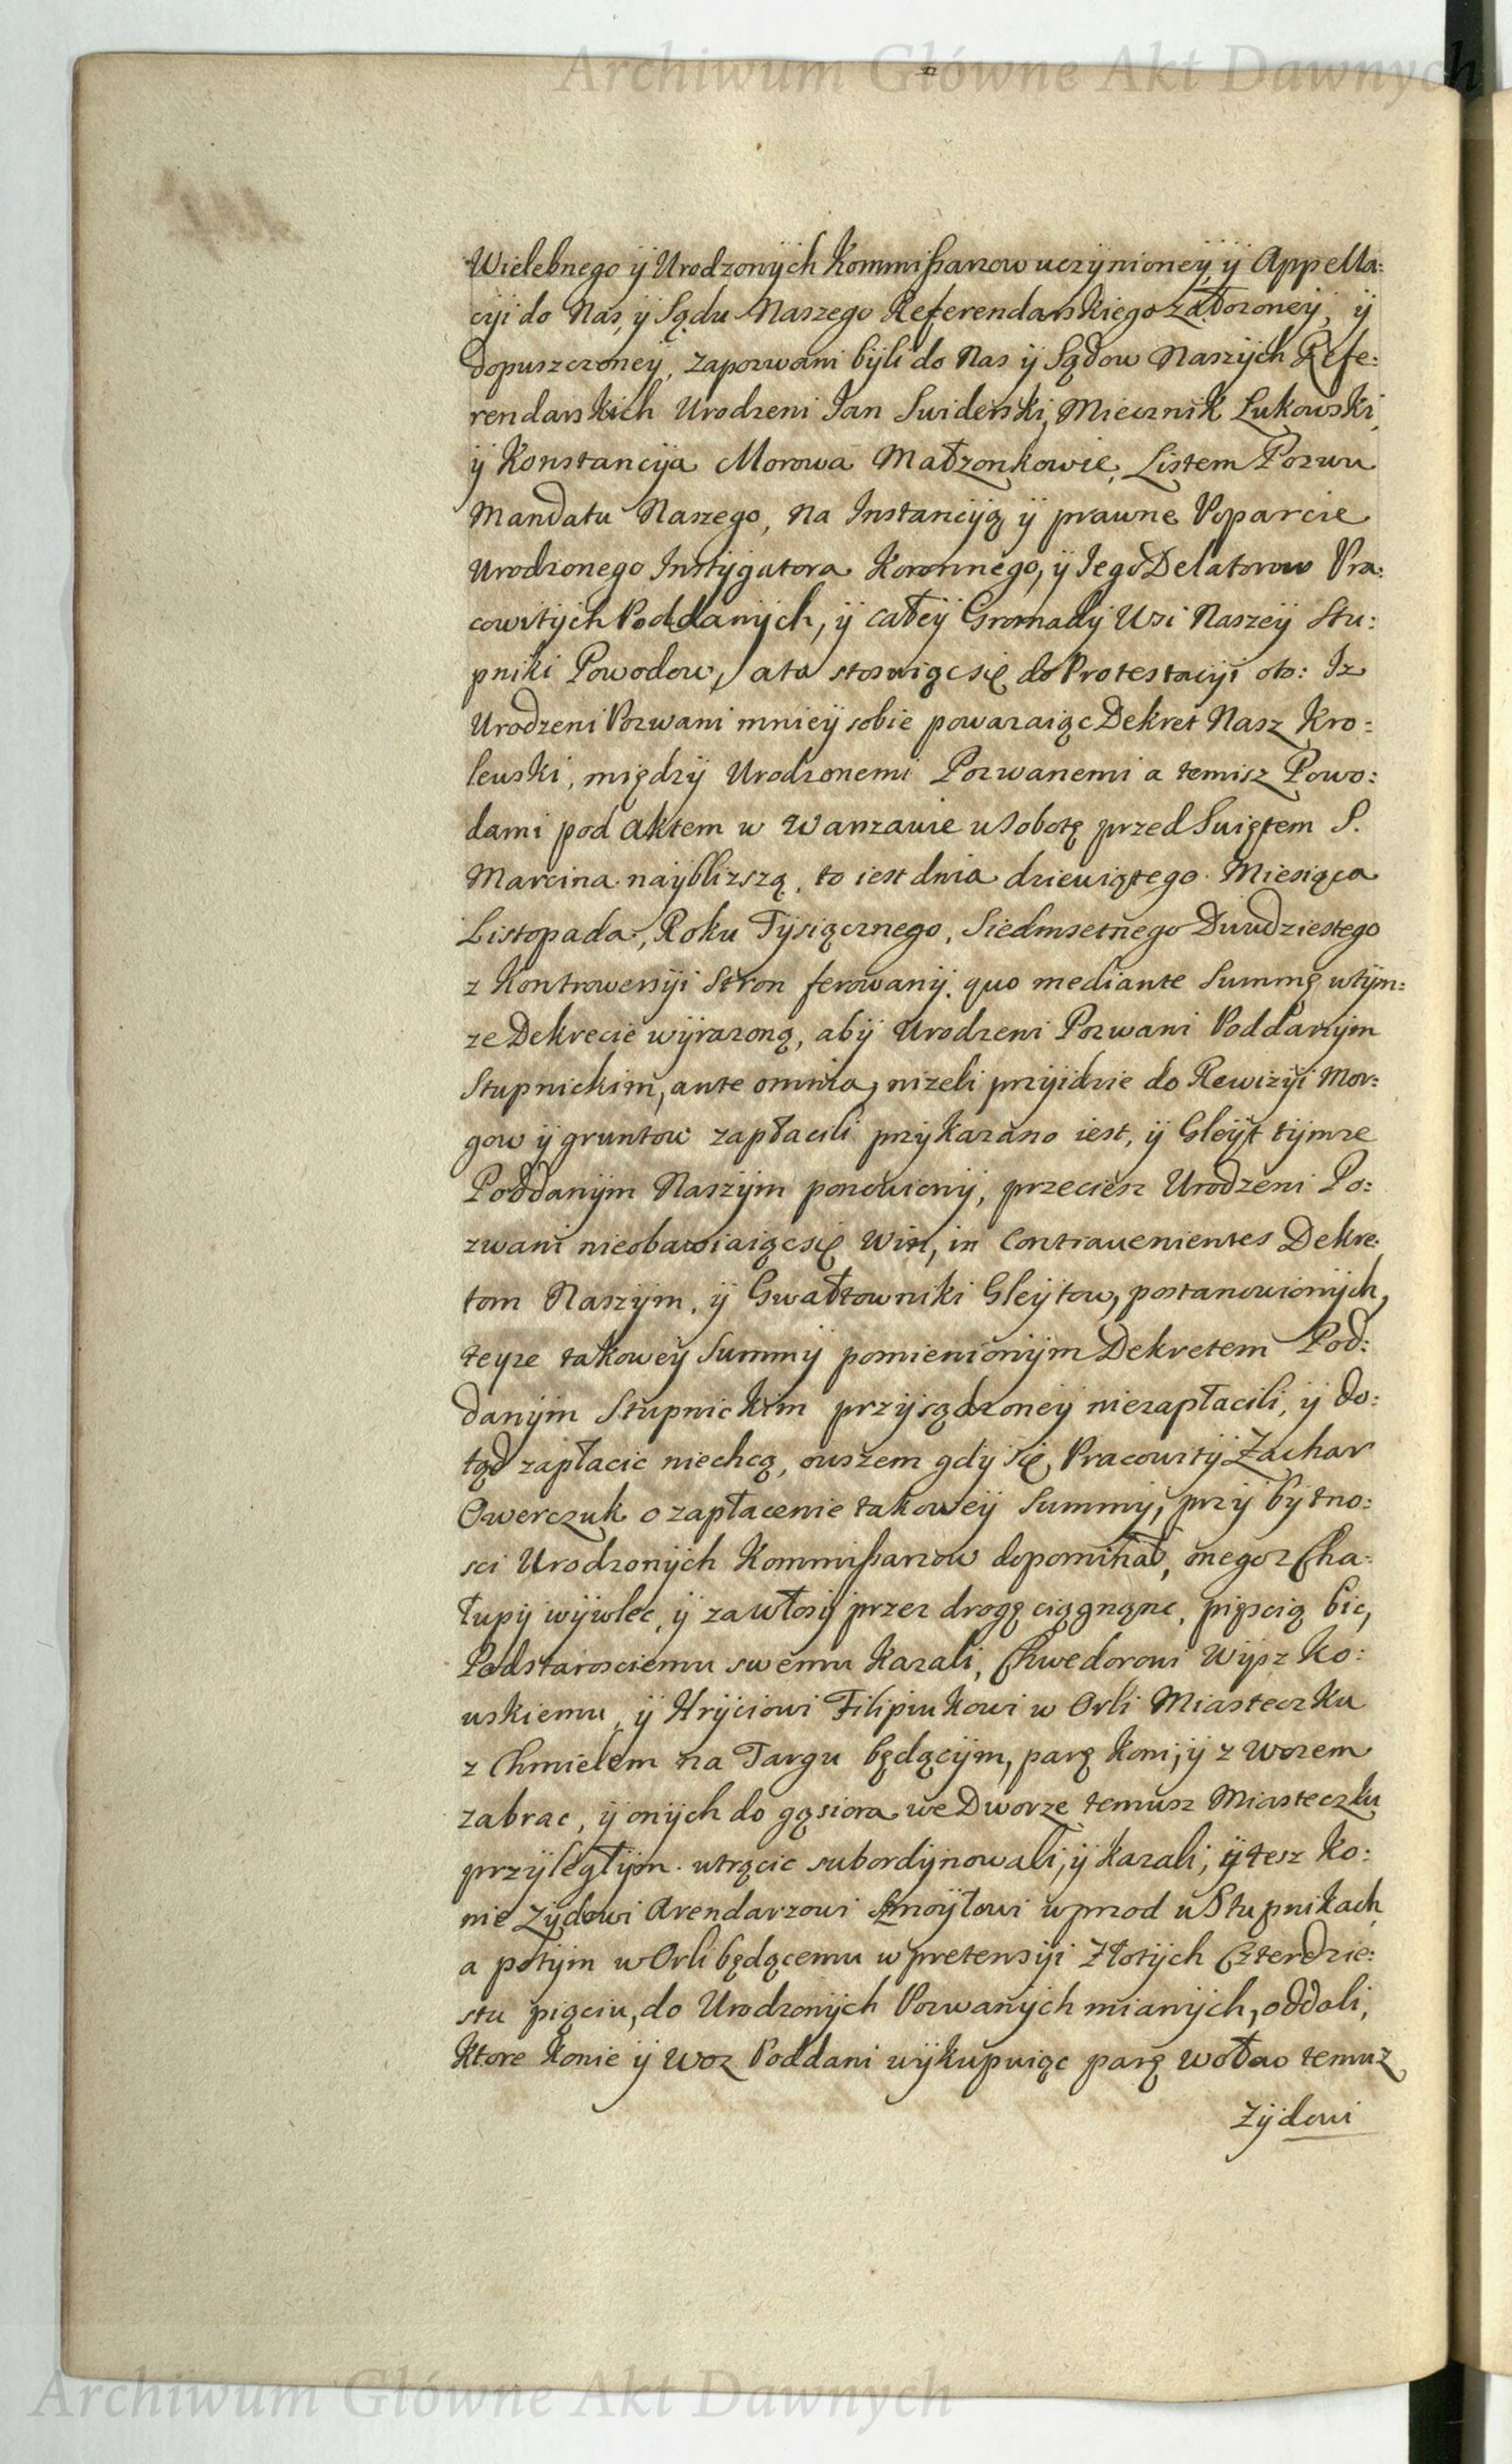 Archiwum Główne Akt Dawnych
Wielebnego ÿ Urodzonÿch Kommißarzow uczÿnioneÿ, ÿ Appella:
cÿi do Nas, ÿ Sądu Naszego Referendarskiego założoneÿ, ÿ
dopuszczoneÿ, zapozwani bÿli do Nas ÿ Sądow Naszÿch Refe:
rendarskich Urodzeni Jan Swiderski, Miecznik Łukowski,
ÿ Konstancÿa Morowa Małzonkowie, Listem Pozwu
Mandatu Naszego, na Instancÿą ÿ prawne Poparcie
Urodzonego Instÿgatora Koronnego, ÿ Jego Delatorow Pra:
cowitÿch Poddanÿch, ÿ całeÿ Gromadÿ Wsi Naszeÿ Stu:
pniki Powodow, a to stosuiąc się do Protestacÿi oto: Iz
Urodzeni Pozwani mnieÿ sobie powazaiąc Dekret Nasz Kro:
lewski, międzÿ Urodzonemi Pozwanemi a temisz Powo:
dami pod Aktem w Warszawie w Sobotę przed Swiętem S.
Marcina naÿblizszą, to iest dnia dziewiątego Miesiąca
Listopada, Roku Tÿsiącznego, Siedmsetnego Dwudziestego
z Kontrowersÿi Stron ferowanÿ, quo mediante Summę wtÿm:
ze Dekrecie wÿrazoną, abÿ Urodzeni Pozwani Poddanÿm
Stupnickim, ante omnia, nizeli przÿidzie do Rewizÿi Mor:
gow ÿ gruntow zapłacili przÿkazano iest, ÿ Gleÿt tÿmze
Poddanÿm Naszÿm ponowionÿ, przeciesz Urodzeni Po:
zwani nieobawiaiąc się Win, in Contravenientes Dekre:
tom Naszÿm, ÿ Gwałtowniki Gleÿtow, postanowionÿch,
teÿze takoweÿ Summÿ pomienionÿm Dekretem Pod:
danÿm Stupnickim przÿsądzoneÿ niezapłacili, ÿ do:
tąd zapłacic niechcą, owszem gdÿ się Pracowitÿ Zachar
Owerczuk o zapłacenie takoweÿ Summÿ, przÿ bÿtno:
sci Urodzonÿch Kommißarzow dopominał, onego z Cha:
łupÿ wÿwlec, ÿ za włosÿ przez drogę ciągnąnc, pięscią bic,
Podstarosciemu swemu kazali, Chwedorowi Wÿszko:
wskiemu, ÿ Hrÿciowi Filipiukowi w Orli Miasteczku
z Chmielem na Targu będącÿm, parę koni, ÿ z Wozem
zabrac, ÿ onÿch do gąsiora we Dworze temusz Miasteczku
przÿległÿm utrącic subordÿnowali, ÿ kazali, ÿ tesz ko:
nie Zÿdowi Arendarzowi Smoÿłowi wprzod w Stupnikach,
a potÿm w Orli będącemu w pretensÿi Złotÿch Czterdzie:
stu pięciu, do Urodzonÿch Pozwanÿch mianÿch, oddali,
Ktore konie ÿ Woz Poddani wÿkupuiąc parę wołow temuz
Zÿdowi
Archiwum Główne Akt Dawnych